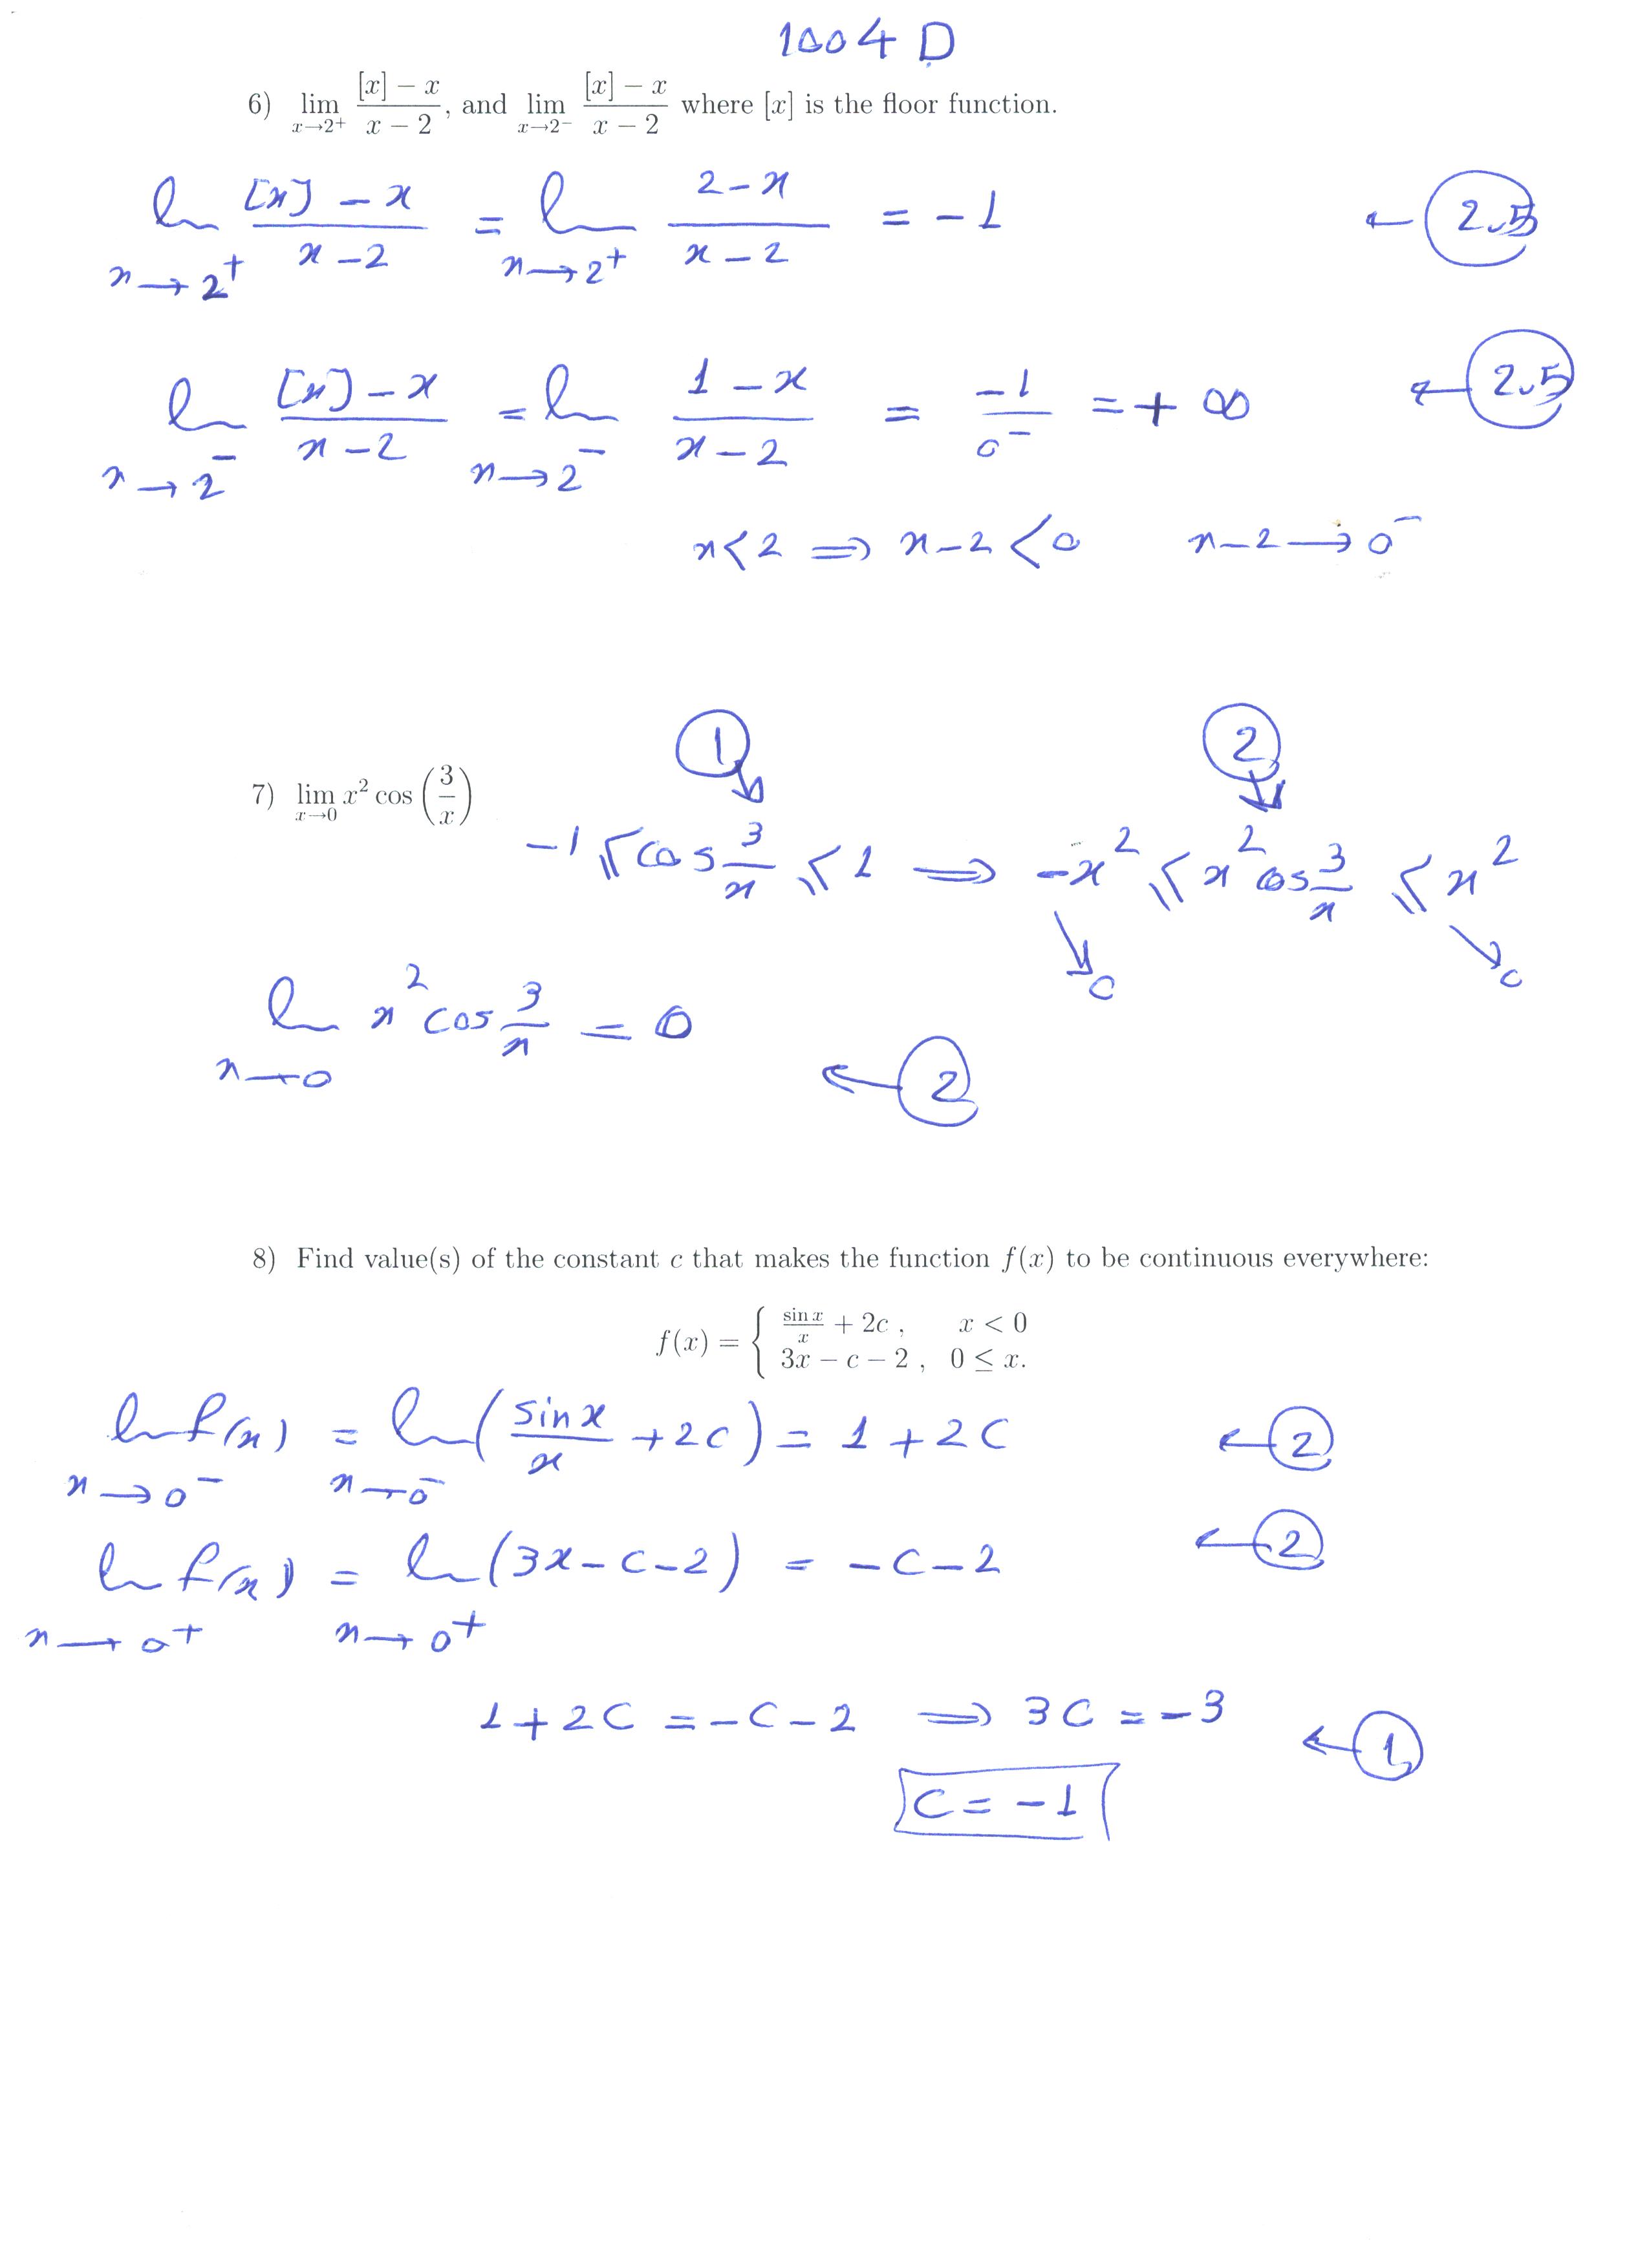 1004 D
6) lim_{x→2+} ([x] − x)/(x − 2), and lim_{x→2−} ([x] − x)/(x − 2) where [x] is the floor function.
lim_{x→2+} ([x] − x)/(x − 2) = lim_{x→2+} (2 − x)/(x − 2) = −1 ← 2.5
lim_{x→2−} ([x] − x)/(x − 2) = lim_{x→2−} (1 − x)/(x − 2) = −1/0− = +∞ ← 2.5
x < 2 ⇒ x − 2 < 0 x − 2 → 0−
1 2
7) lim_{x→0} x² cos(3/x)
−1 ≤ cos 3/x ≤ 1 ⇒ −x² ≤ x² cos 3/x ≤ x²
↘ 0 ↘ 0
lim_{x→0} x² cos 3/x = 0 ← 2
8) Find value(s) of the constant c that makes the function f(x) to be continuous everywhere:
f(x) = { sin x/x + 2c , x < 0
3x − c − 2 , 0 ≤ x.
lim_{x→0−} f(x) = lim_{x→0−} (sin x/x + 2c) = 1 + 2c ← 2
lim_{x→0+} f(x) = lim_{x→0+} (3x − c − 2) = −c − 2 ← 2
1 + 2c = −c − 2 ⇒ 3c = −3 ← 1
c = −1